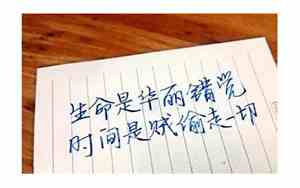 生命是华丽错觉
时间是贼偷走一切